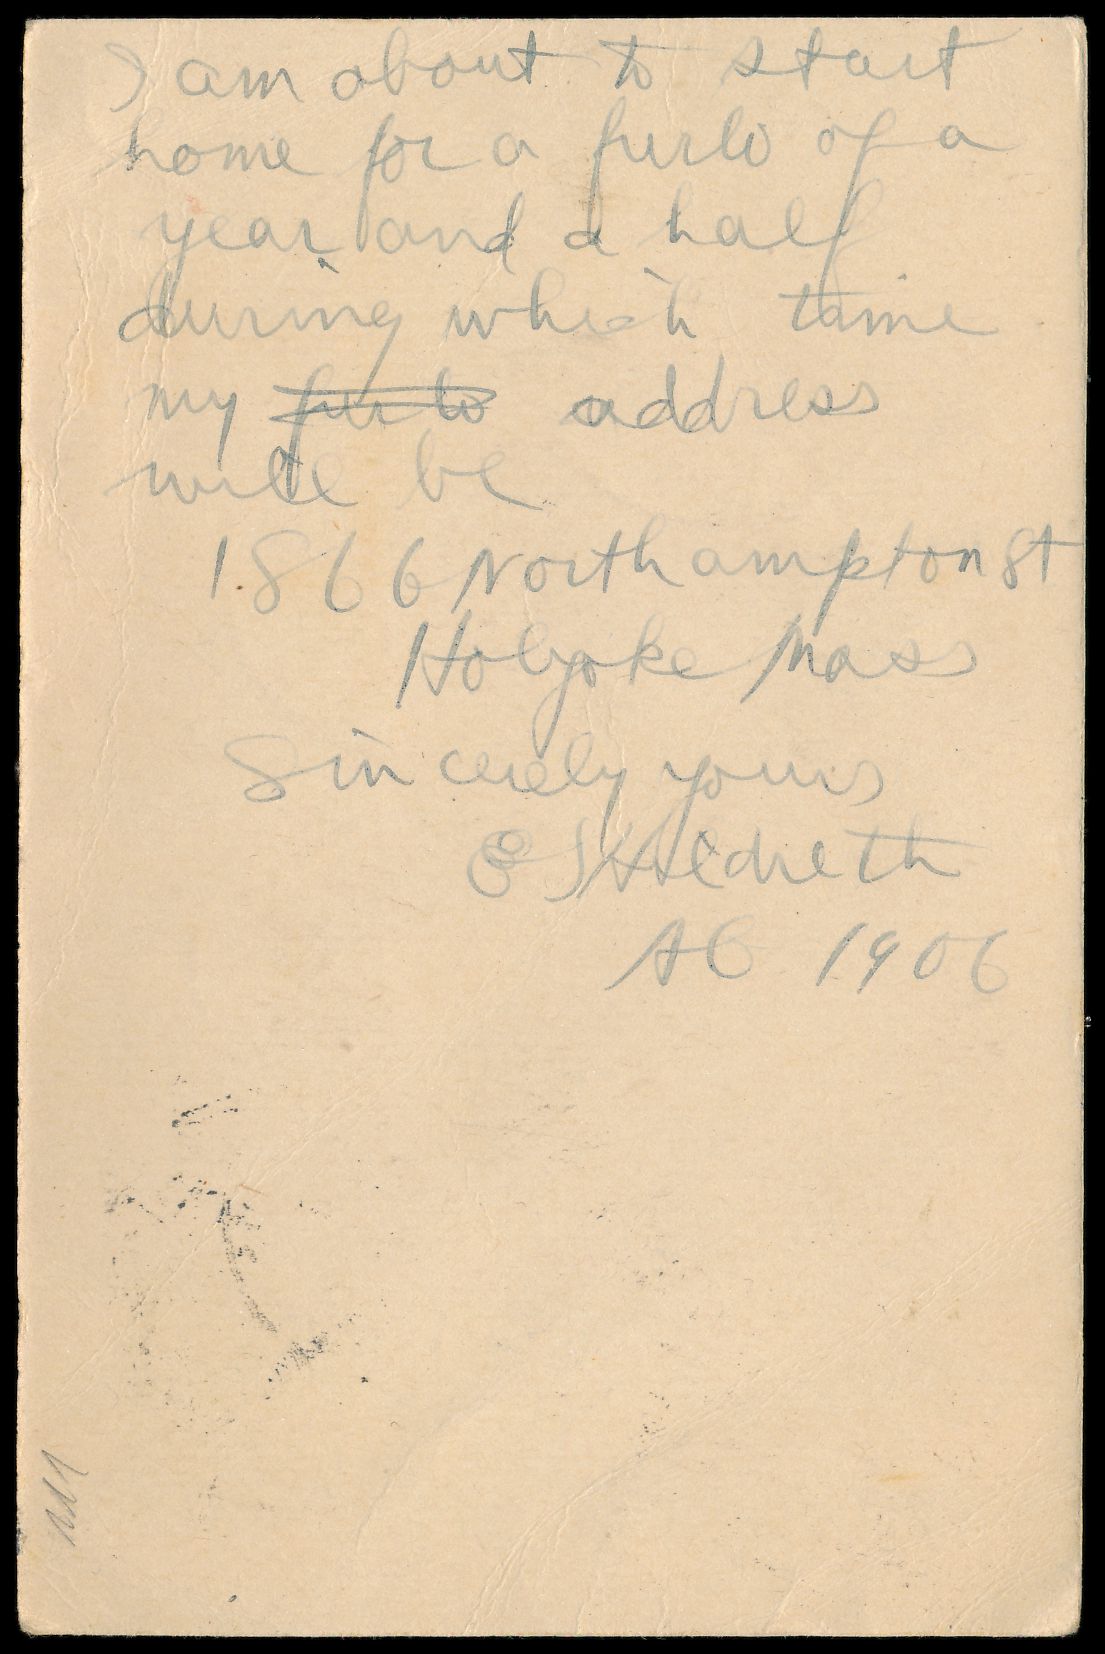 I am about to start
home for a furlo of a
year and a half
during which time
my furlo address
will be
1866 Northampton St
Holyoke Mass
Sincerely yours
E S Hildreth
AC 1906